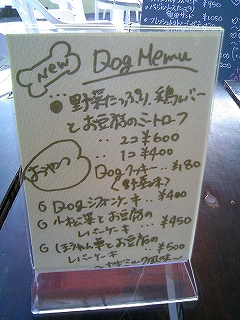 New
Dog Memu
●野菜たっぷり、鶏レバー
とお豆腐のミートローフ
〃 2コ ¥600
〃 1コ ¥400
おやつ
Dogクッキー ¥180
(野菜味)
G Dogシフォンケーキ ¥400
G 小松菜とお豆腐の
レバーケーキ ¥450
G ほうれん草とお豆腐の
レバーケーキ ¥500